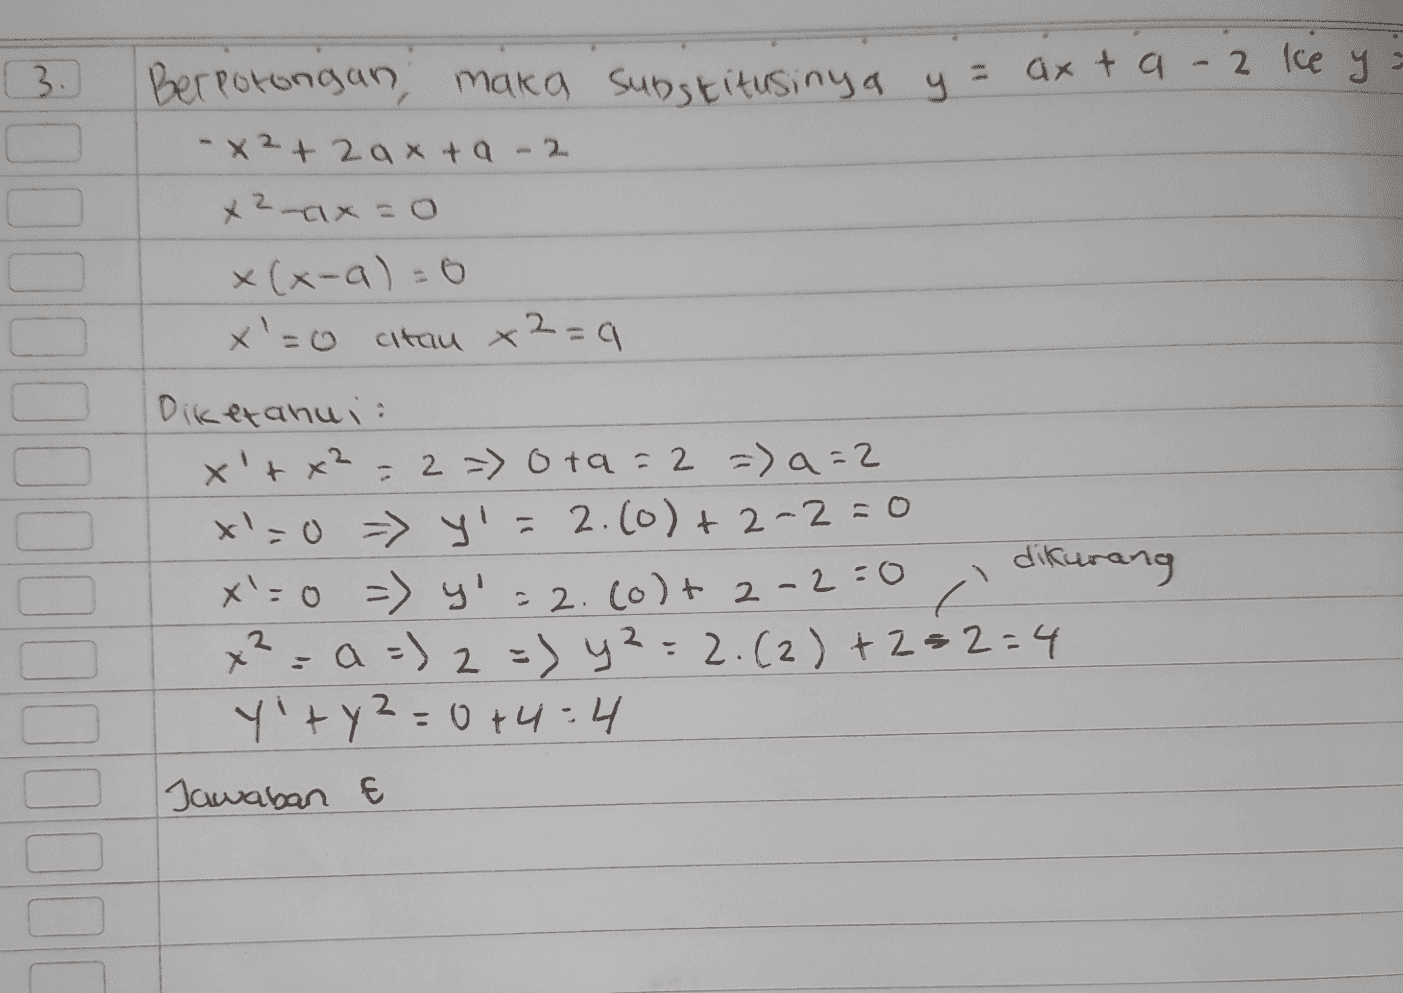 3. Berpotongan, maka substitusinya y = ax + a - 2 ke y =
-x² + 2ax + a - 2
x² - ax = 0
x(x-a) = 0
x¹ = 0 atau x² = a
Diketahui :
x¹ + x² = 2 => 0 + a = 2 => a = 2
x¹ = 0 => y¹ = 2.(0) + 2 - 2 = 0
x¹ = 0 => y¹ = 2.(0) + 2 - 2 = 0
dikurang
x² = a => 2 => y² = 2.(2) + 2 - 2 = 4
y¹ + y² = 0 + 4 = 4
Jawaban E